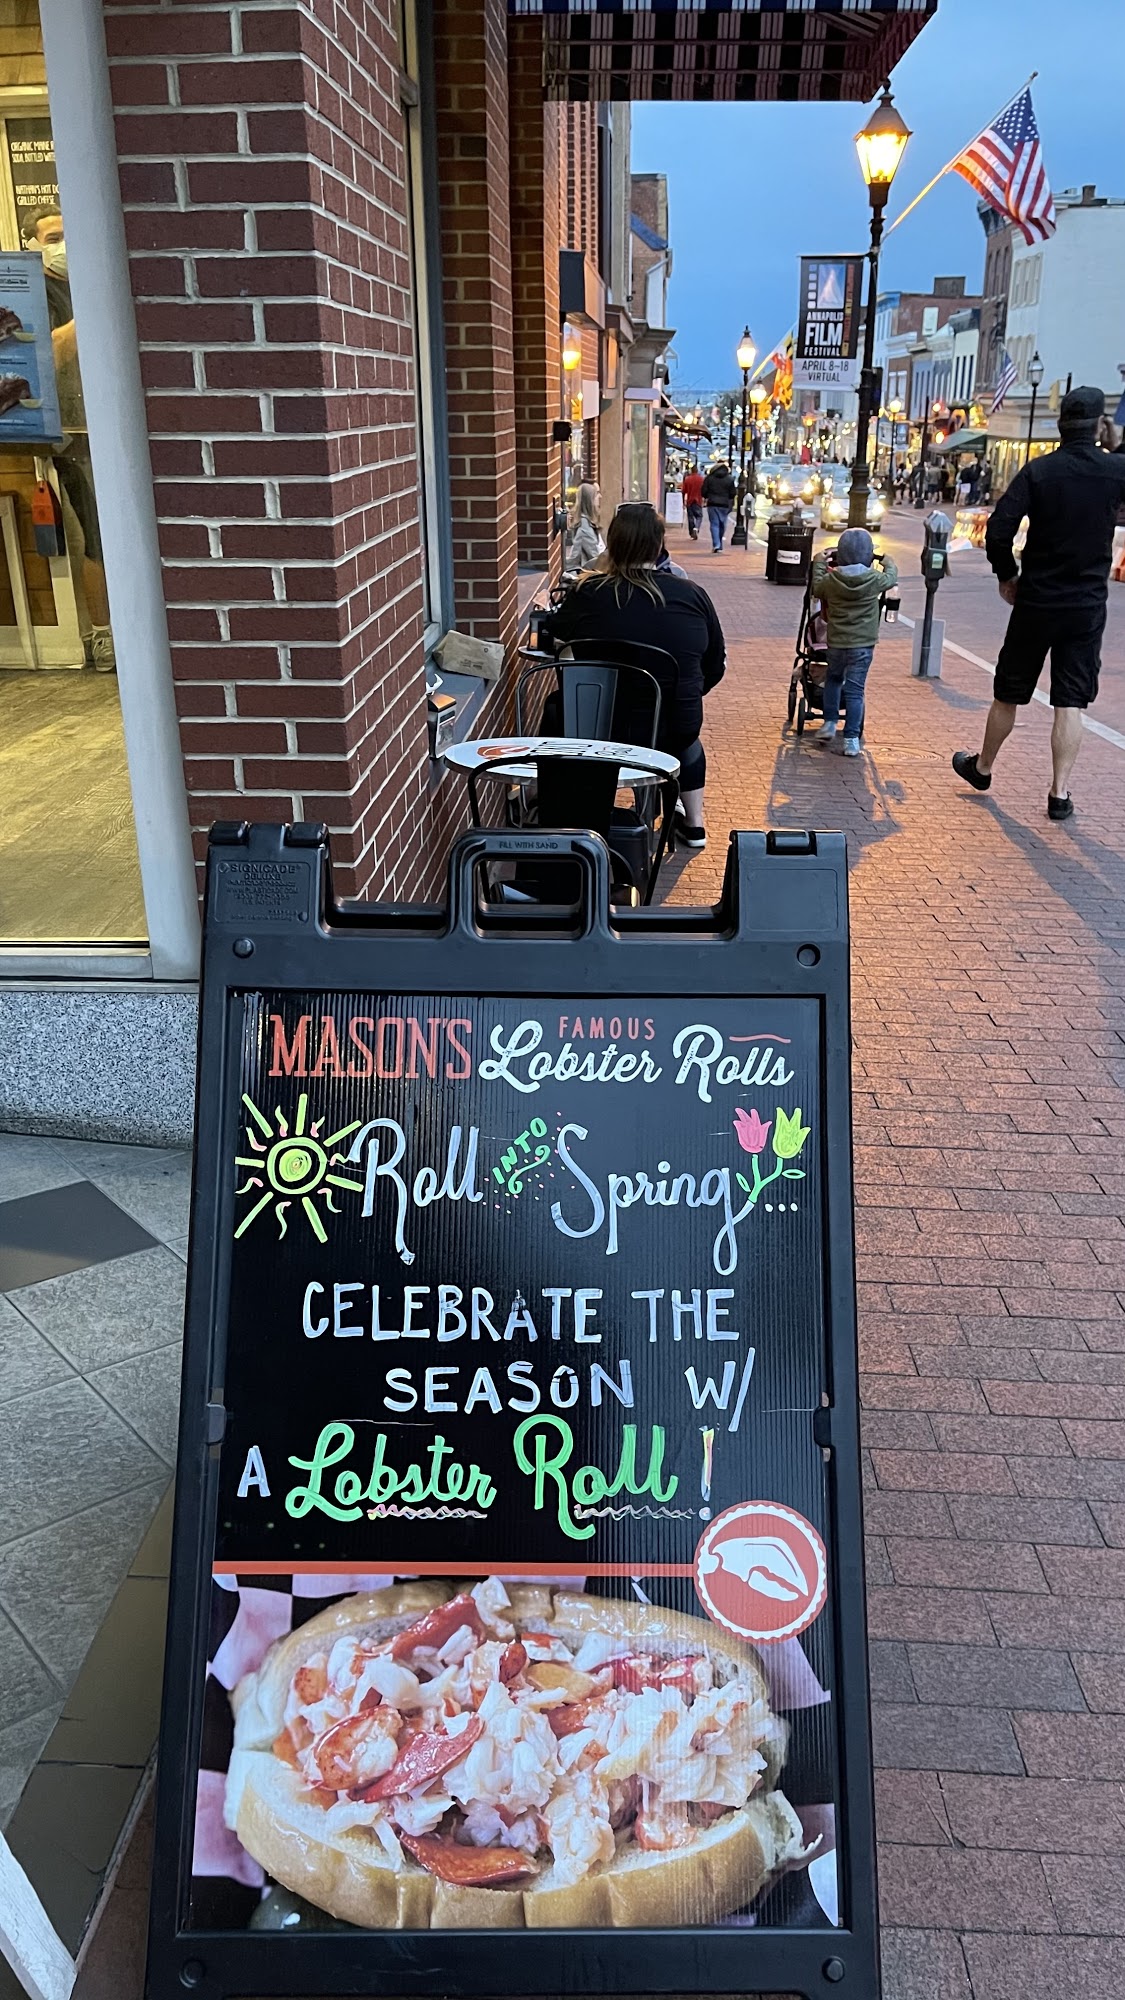 ORGANIC MAINE R
SODA, BOTTLED WATE
NATHAN'S HOT DO
GRILLED CHEESE
ANNAPOLIS
FILM
FESTIVAL
APRIL 8-18
VIRTUAL
FILL WITH SAND
SIGNICADE
DELUXE
MASON'S FAMOUS Lobster Rolls
Roll INTO Spring...
CELEBRATE THE
SEASON W/
A Lobster Roll!